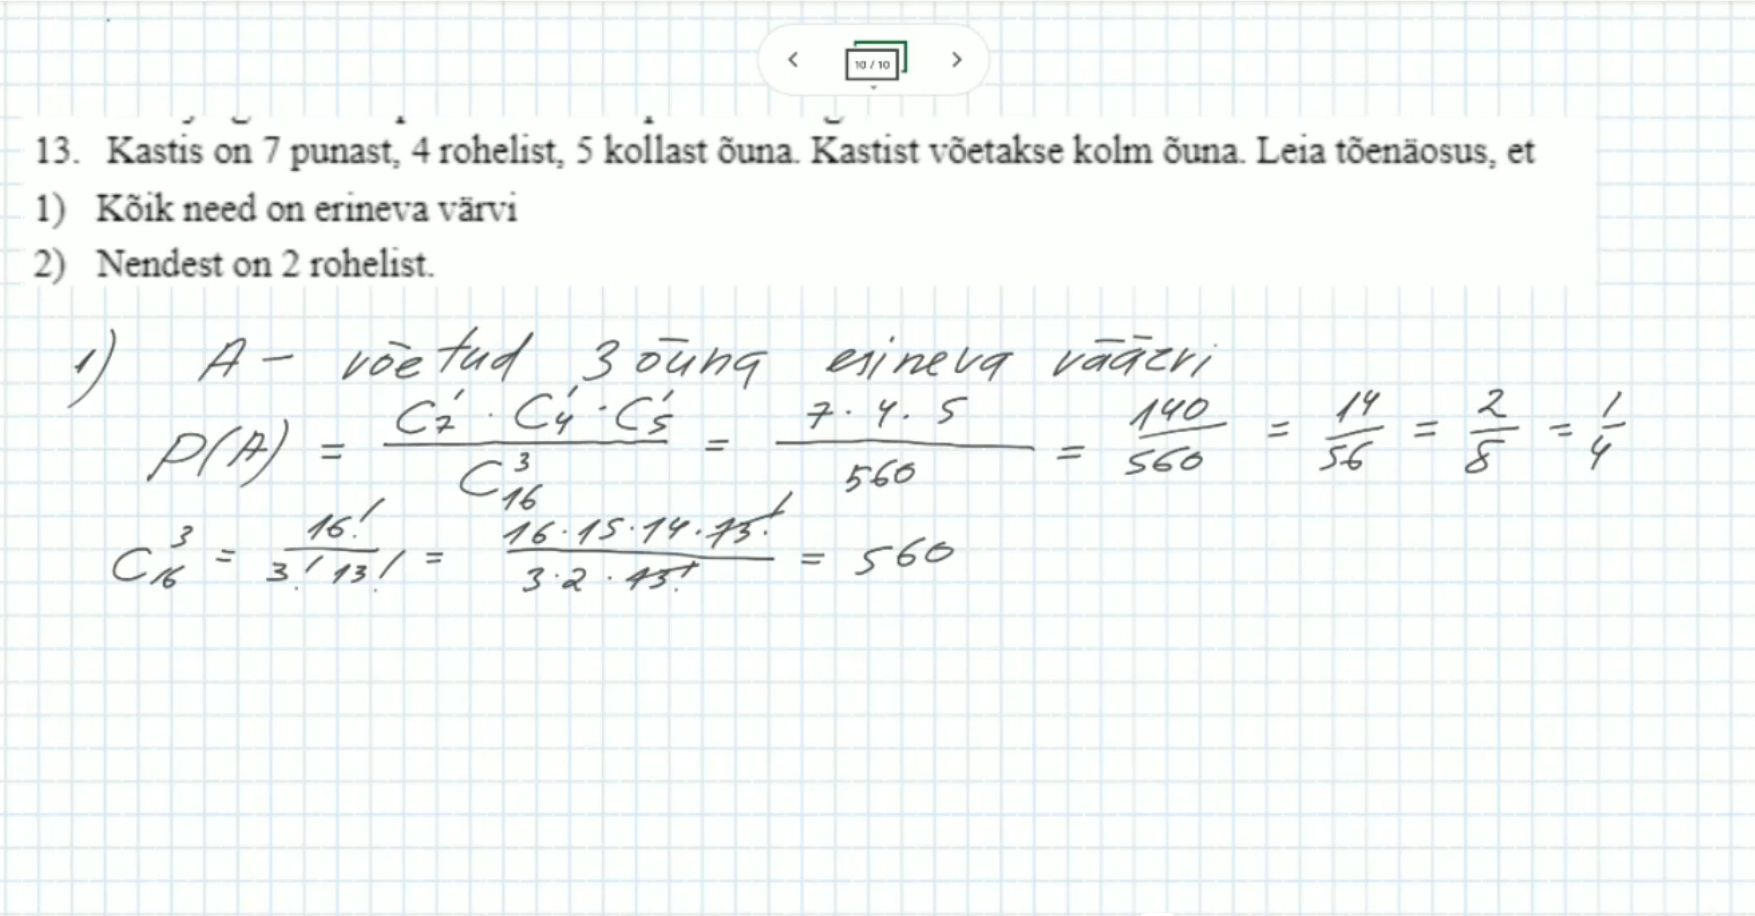 10 / 10
13. Kastis on 7 punast, 4 rohelist, 5 kollast õuna. Kastist võetakse kolm õuna. Leia tõenäosus, et
1) Kõik need on erineva värvi
2) Nendest on 2 rohelist.
1) A – võetud 3 õuna erineva väärvi
P(A) = (C₇¹ · C₄¹ · C₅¹) / C₁₆³ = (7 · 4 · 5) / 560 = 140/560 = 14/56 = 2/8 = 1/4
C₁₆³ = 16! / (3! 13!) = (16 · 15 · 14 · 13!) / (3 · 2 · 13!) = 560